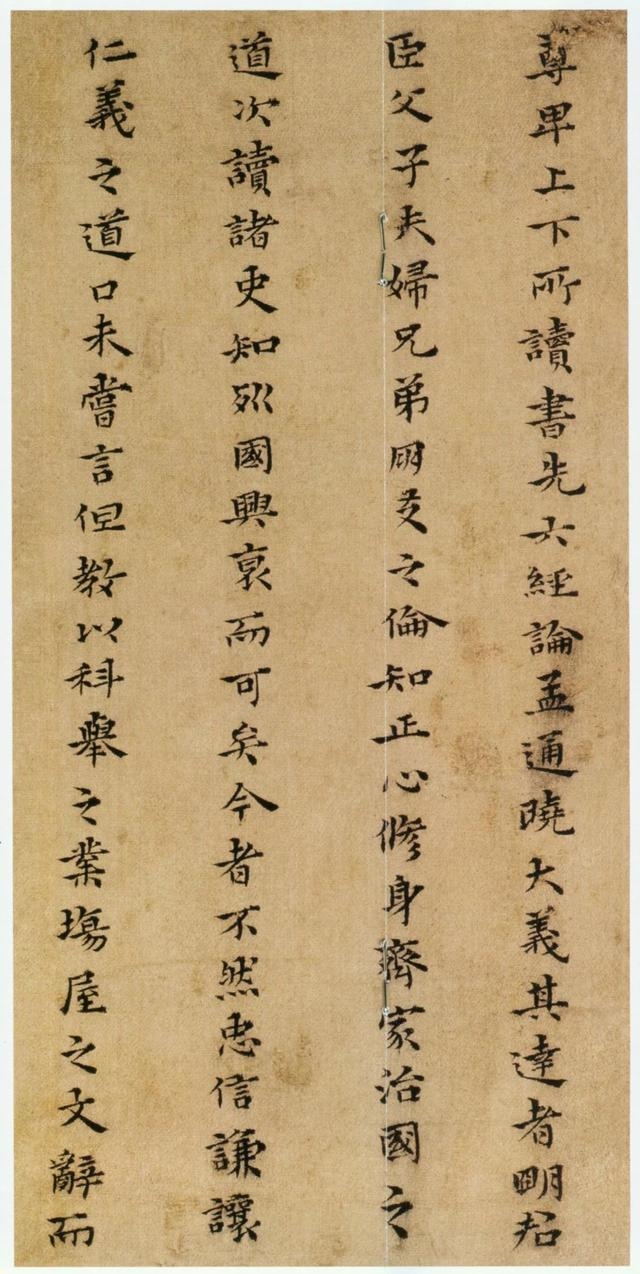 尊卑上下所讀書先六經論孟通曉大義其達者明君
臣父子夫婦兄弟朋友之倫知正心修身齊家治國之
道次讀諸史知列國興衰而可矣今者不然忠信謙讓
仁義之道口未嘗言但教以科舉之業場屋之文辭而